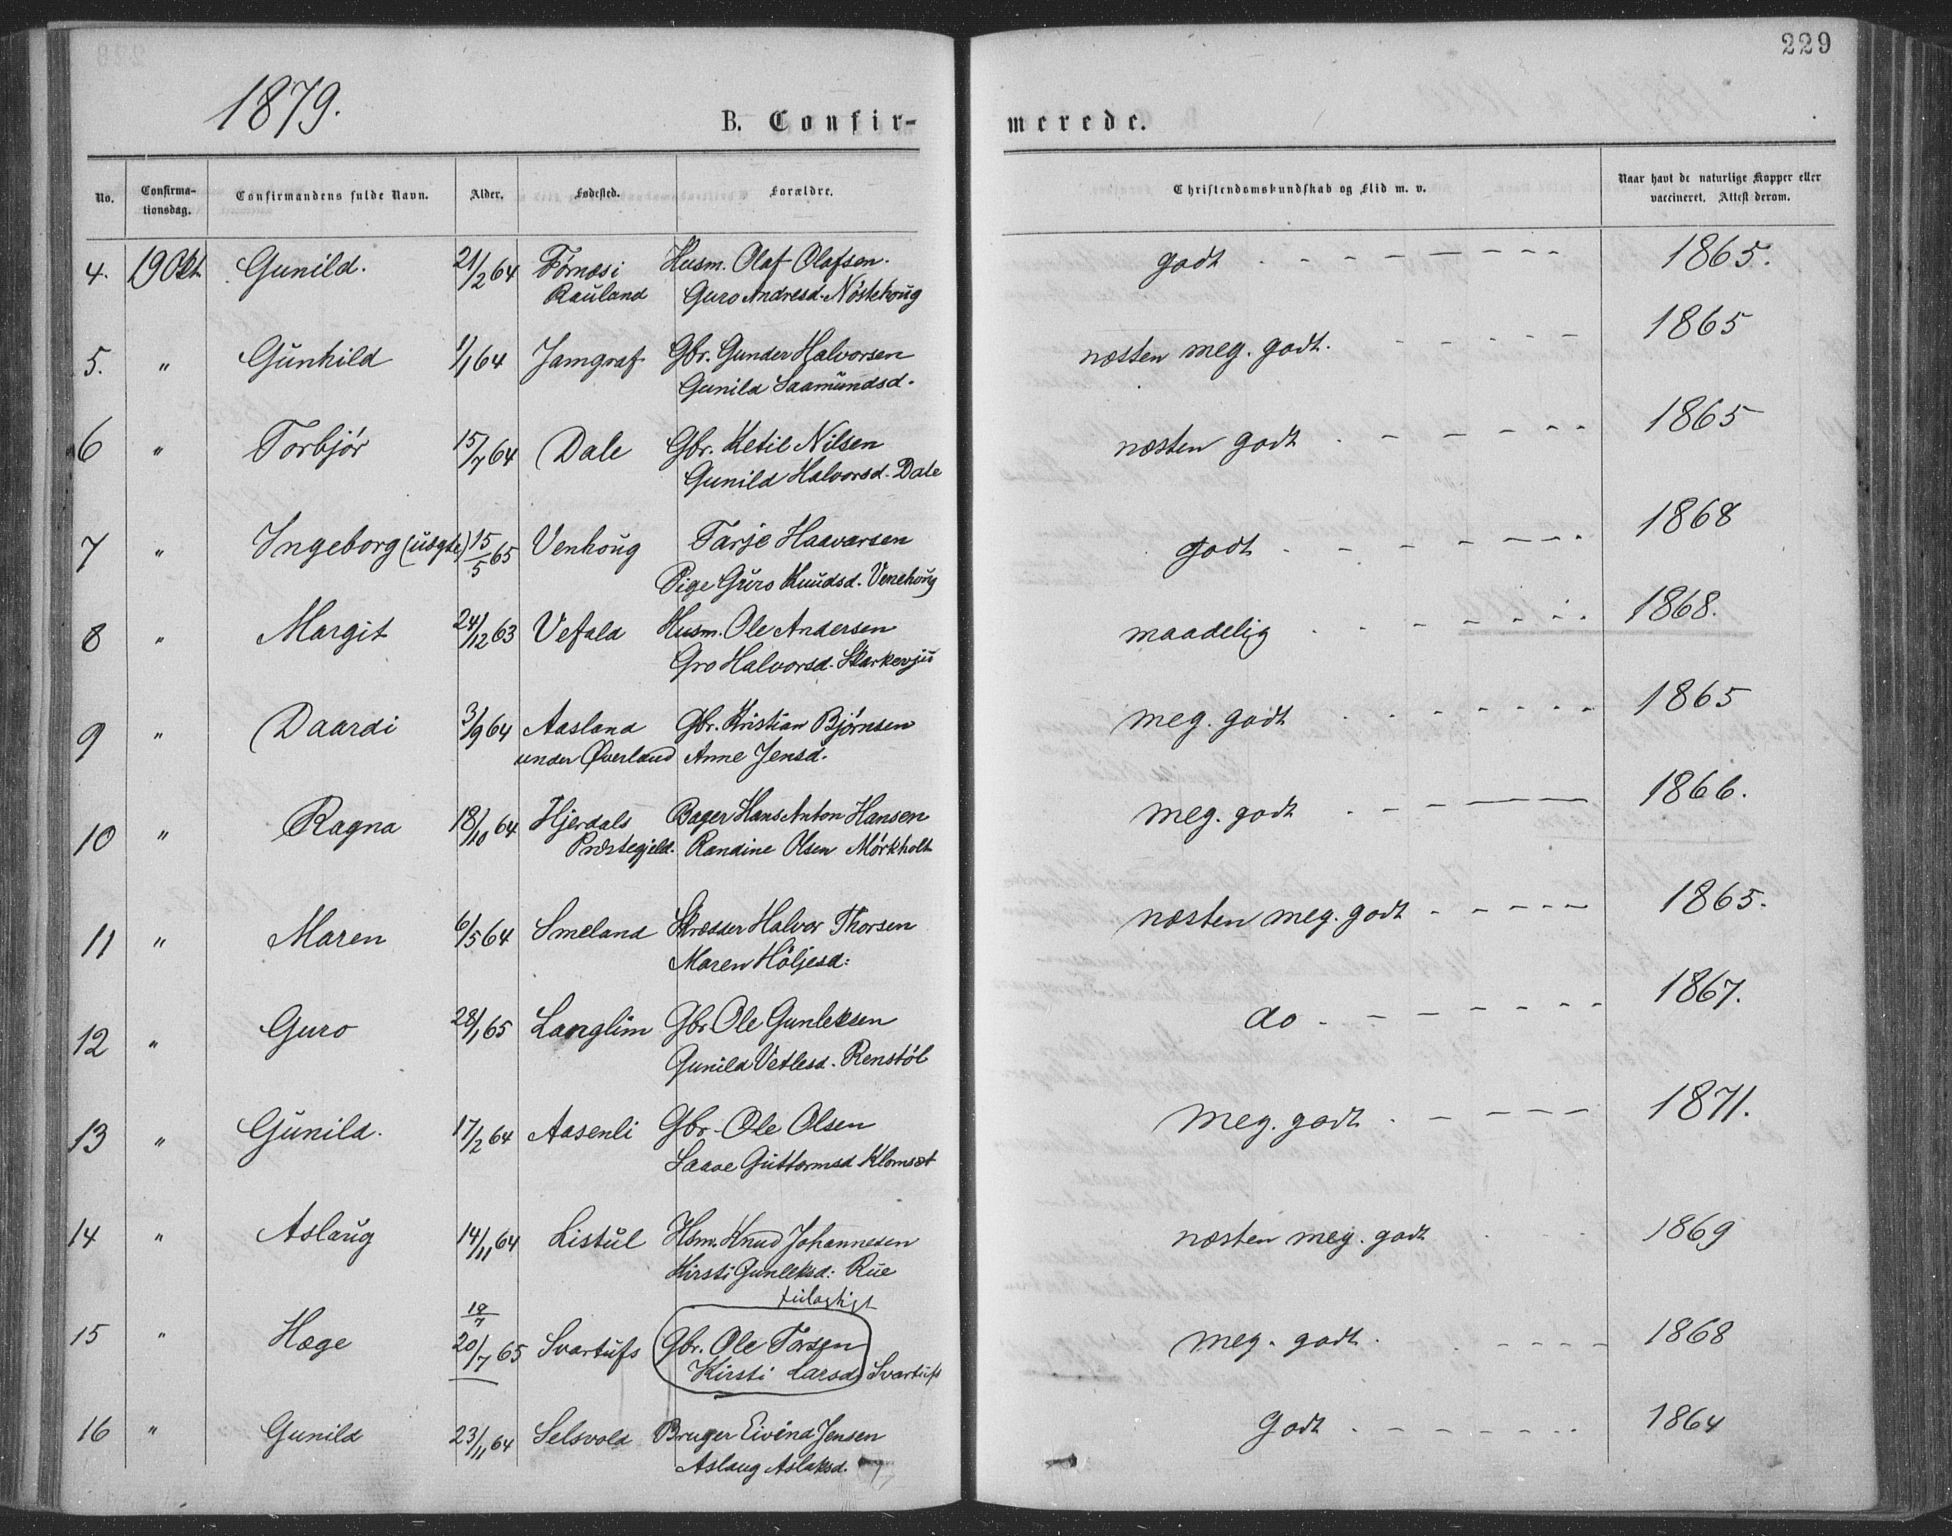 229
1879.
B. Confirmerede.
No. Confirmationsdag. Confirmandens fulde Navn. Alder. Fødested. Forældre. Christendomskundskab og Flid m. v. Naar havt de naturlige Kopper eller vaccineret. Attest derom.
4. 19 Okt. Gunild. 21/2 64 Førnæsi Husm. Olaf Olafsen. godt 1865.
Rauland Guro Andresd. Nöstehoug
5. " Gunhild 1/1 64 Jamgraf Gbr. Gunder Halvorsen næsten meg. godt. 1865
Gunild Saamundsd.
6 " Torbjör 15/7 64 Dale Gbr. Ketil Nilsen næsten godt 1865
Gunild Halvorsd. Dale
7 " Ingeborg (uægte) 15/5 65 Venhoug Tarje Haavarsen godt 1868
Pige Guro Knudsd. Venehoug
8 " Margit 24/12 63 Vefald Husm. Ole Andersen maadelig 1868.
Gro Halvorsd. Skarkevju
9 " Daardi 3/9 64 Aasland Gbr. Kristian Bjørnsen meg. godt 1865
under Øverland Anne Jensd.
10 " Ragna 18/10 64 Hjerdals Bager Hans Anton Hansen meg. godt 1866.
Præstegjeld. Randine Olsen Mørkholt
11 " Maren 6/5 64 Smeland Skrædder Halvor Thorsen næsten meg. godt 1865.
Maren Höljesd:
12 " Guro 28/1 65 Langlim Gbr Ole Gunleksen do 1867.
Gunild Vetlesd. Renstöl
13 " Gunild. 17/2 64 Aasenli Gbr. Ole Olsen meg. godt 1871.
Saave Guttormsd Klomset
14 " Aslaug 14/11 64 Listul Hsm. Knud Johannesen næsten meg. godt 1869
Kirsti Gunleksd: Rue
19/7
15 " Hæge 20/7 65 Svartufs Gbr. Ole Torsen meg. godt. 1868
Kirsti Larsd. Svartufs
16 " Gunild 23/11 64 Selsvold Bruger Eivind Jensen Godt 1864
Aslaug Aslaksd.